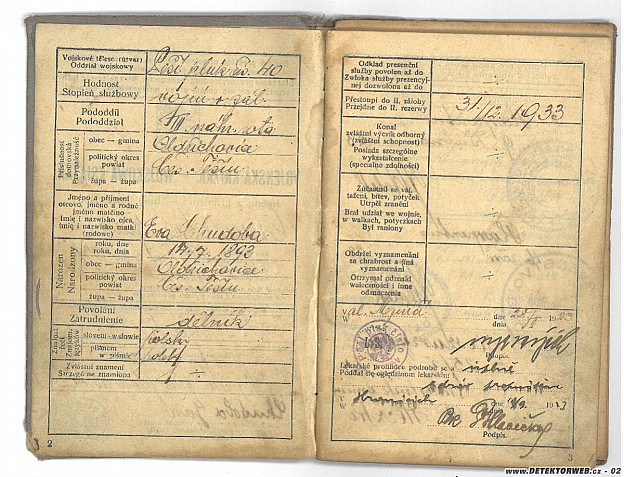 Vojskové těleso (útvar)
Oddział wojskowy
Pěší pluk čís. 40
Hodnost
Stopień służbowy
vojín v zál.
Pododdíl
Pododdział
III náhr. rota
Příslušnost domovská
Przynależność
obec — gmina
Oldřichovice
politický okres
powiat
Čes. Těšín
župa — żupa
Jméno a příjmení
otcovo, jméno a rodné
jméno matčino
Imię i nazwisko ojca,
imię i nazwisko matki
(rodowe)
Eva Chudoba
Narozen
Narodzony
roku, dne
roku, dnia
17/7 1893
obec — gmina
Oldřichovice
politický okres
powiat
Čes. Těšín
župa — żupa
Povolání
Zatrudnienie
dělník
Znalost řečí
Znajom. języków
slovem - w słowie
polsky
písmem
w piśmie
Zvláštní znamení
Szczególne znamiona
2
Odklad presenční
služby povolen až do
Zwłoka służby prezencyj-
nej dozwolona aż do
Přestoupí do II. zálohy
Przejdzie do II. rezerwy
31/12. 1933
Konal
zvláštní výcvik odborný
(zvláštní schopnost)
Posiada szczególne
wykształcenie
(specialne zdolności)
Zúčastnil se vál.
tažení, bitev, potyček
Utrpěl zranění
Brał udział we wojnie,
w walkach, potyczkach
Był raniony
Obdržel vyznamenání
za chrabrost a jiná
vyznamenání
Otrzymał odznaki
waleczności i inne
odznaczenia
V
W
dne
dnia
1923
Podpis.
Lékařské prohlídce podrobil se v
Poddał się oględzinom lekarskim w
V
W
dne
Podpis.
3
www.DETEKTORWEB.cz - 02